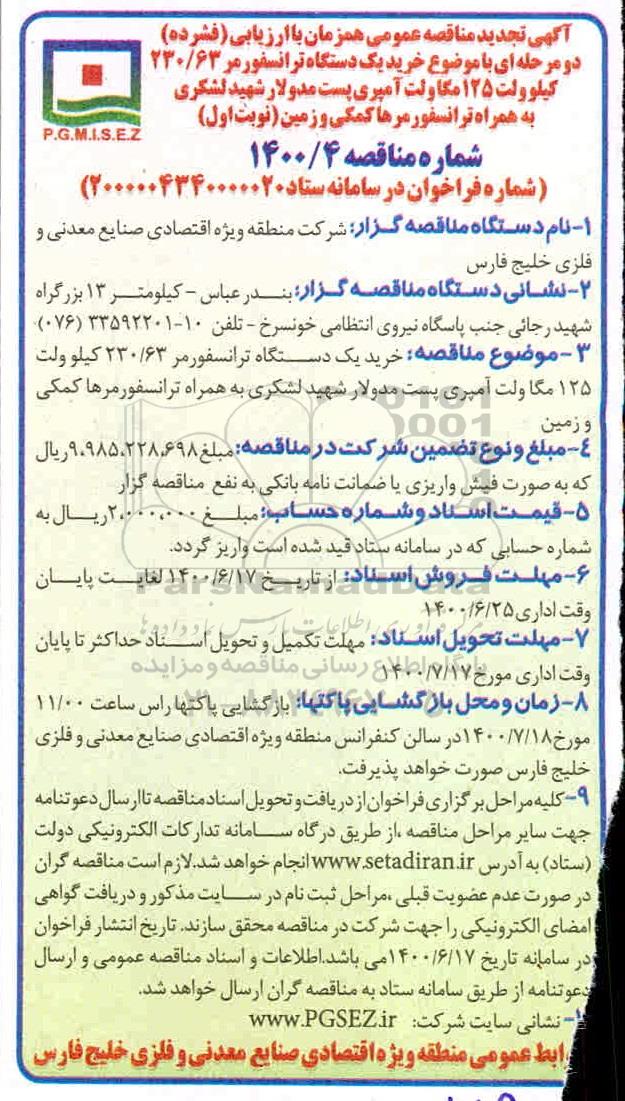 آگهی تجدید مناقصه عمومی همزمان با ارزیابی (فشرده)
دو مرحله ای با موضوع خرید یک دستگاه ترانسفورمر ۲۳۰/۶۳
کیلو ولت ۱۲۵ مگا ولت آمپری پست مدولار شهید لشکری
به همراه ترانسفورمرها کمکی و زمین (نوبت اول)
P.G.M.I.S.E.Z
شماره مناقصه ۱۴۰۰/۴
(شماره فراخوان در سامانه ستاد ۲۰۰۰۰۰۴۳۴۰۰۰۰۰۲۰)
۱-نام دستگاه مناقصه گزار: شرکت منطقه ویژه اقتصادی صنایع معدنی و
فلزی خلیج فارس
۲-نشانی دستگاه مناقصه گزار: بندر عباس - کیلومتر ۱۳ بزرگراه
شهید رجائی جنب پاسگاه نیروی انتظامی خونسرخ - تلفن ۱۰-۳۳۵۹۲۲۰۱ (۰۷۶)
۳-موضوع مناقصه: خرید یک دستگاه ترانسفورمر ۲۳۰/۶۳ کیلو ولت
۱۲۵ مگا ولت آمپری پست مدولار شهید لشکری به همراه ترانسفورمرها کمکی
و زمین
۴-مبلغ و نوع تضمین شرکت در مناقصه: مبلغ ۹،۹۸۵،۲۲۸،۶۹۸ ریال
که به صورت فیش واریزی یا ضمانت نامه بانکی به نفع مناقصه گزار
۵-قیمت اسناد و شماره حساب: مبلغ ۲،۰۰۰،۰۰۰ ریال به
شماره حسابی که در سامانه ستاد قید شده است واریز گردد.
۶-مهلت فروش اسناد: از تاریخ ۱۴۰۰/۶/۱۷ لغایت پایان
وقت اداری ۱۴۰۰/۶/۲۵
۷-مهلت تحویل اسناد: مهلت تکمیل و تحویل اسناد حداکثر تا پایان
وقت اداری مورخ ۱۴۰۰/۷/۱۷
۸-زمان و محل بازگشایی پاکتها: بازگشایی پاکتها راس ساعت ۱۱/۰۰
مورخ ۱۴۰۰/۷/۱۸ در سالن کنفرانس منطقه ویژه اقتصادی صنایع معدنی و فلزی
خلیج فارس صورت خواهد پذیرفت.
۹-کلیه مراحل برگزاری فراخوان از دریافت و تحویل اسناد مناقصه تا ارسال دعوتنامه
جهت سایر مراحل مناقصه ،از طریق درگاه سامانه تدارکات الکترونیکی دولت
(ستاد) به آدرس www.setadiran.ir انجام خواهد شد.لازم است مناقصه گران
در صورت عدم عضویت قبلی ،مراحل ثبت نام در سایت مذکور و دریافت گواهی
امضای الکترونیکی را جهت شرکت در مناقصه محقق سازند. تاریخ انتشار فراخوان
در سامانه تاریخ ۱۴۰۰/۶/۱۷ می باشد.اطلاعات و اسناد مناقصه عمومی و ارسال
دعوتنامه از طریق سامانه ستاد به مناقصه گران ارسال خواهد شد.
نشانی سایت شرکت: www.PGSEZ.ir
روابط عمومی منطقه ویژه اقتصادی صنایع معدنی و فلزی خلیج فارس
ParsNamadData
پایگاه اطلاع رسانی مناقصه و مزایده